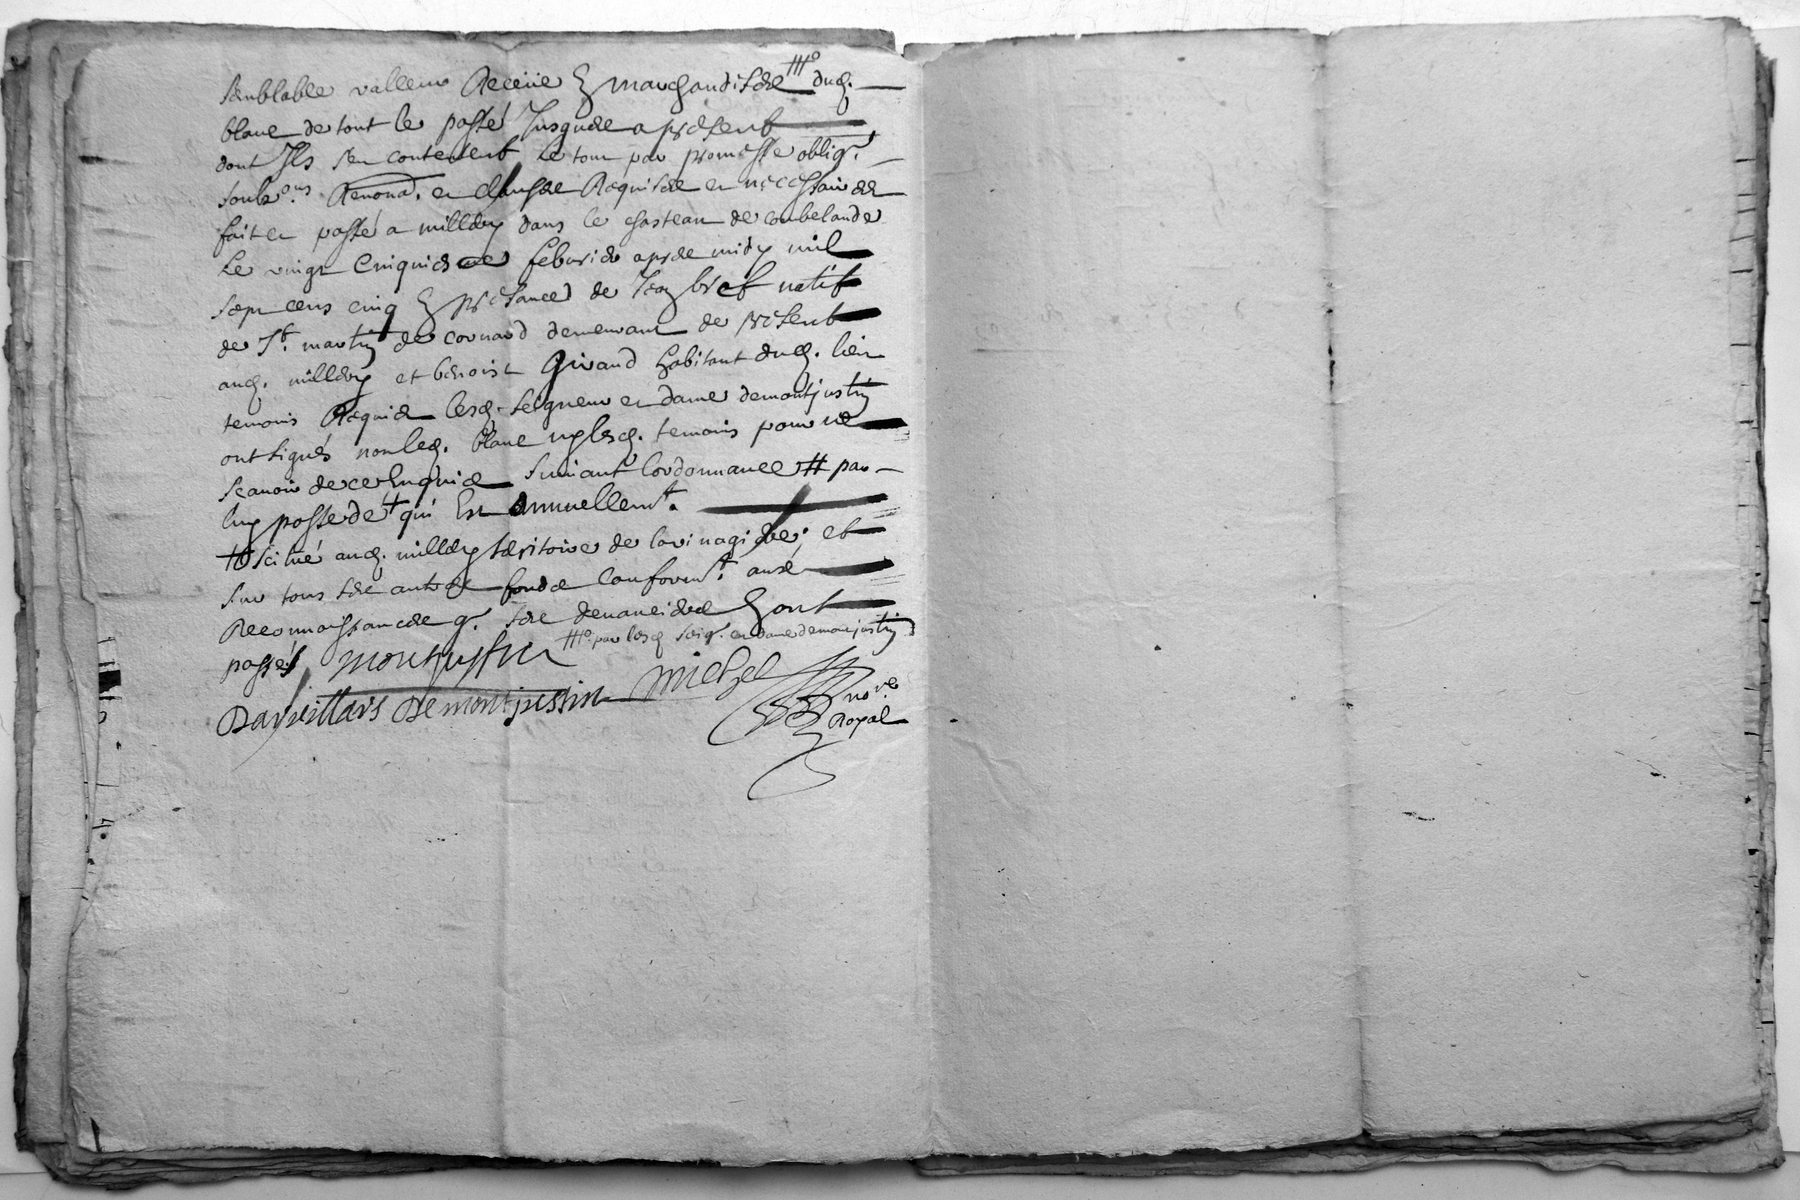 semblable valleur Receüe En marchandises ##° dud.
blanc de tout le passé Jusques a present
dont Ils sen contentent Le tout par promesse oblig.
soub.ons Renona. et clauses Requises et necessaires
fait et passé a millery dans le chasteau de coubelande
Le vingt cinquiesme febvrier apres midy mil
sept cens cinq En presance de Jean bref natif
de St. martin de cornard demeurant de present
aud. millery et benoist Giraud habitant dud. lieu
temoins Requis lesd. seigneur et dame demontjustin
ont signés non led. blanc ny lesd. temoins pour ne
scavoir de ce Enquis suivant lordonnance # par
luy possede + qui Est annuellemt.
# scitué aud. millery territoire de et
sur tous ses autres fonds conformt. aux
Reconnoissances q. ses devanciers En ont
passés ##° par lesd seigr. et dame demontjustin
montjustin
Darvillars De montjustin michel
no.re
Royal